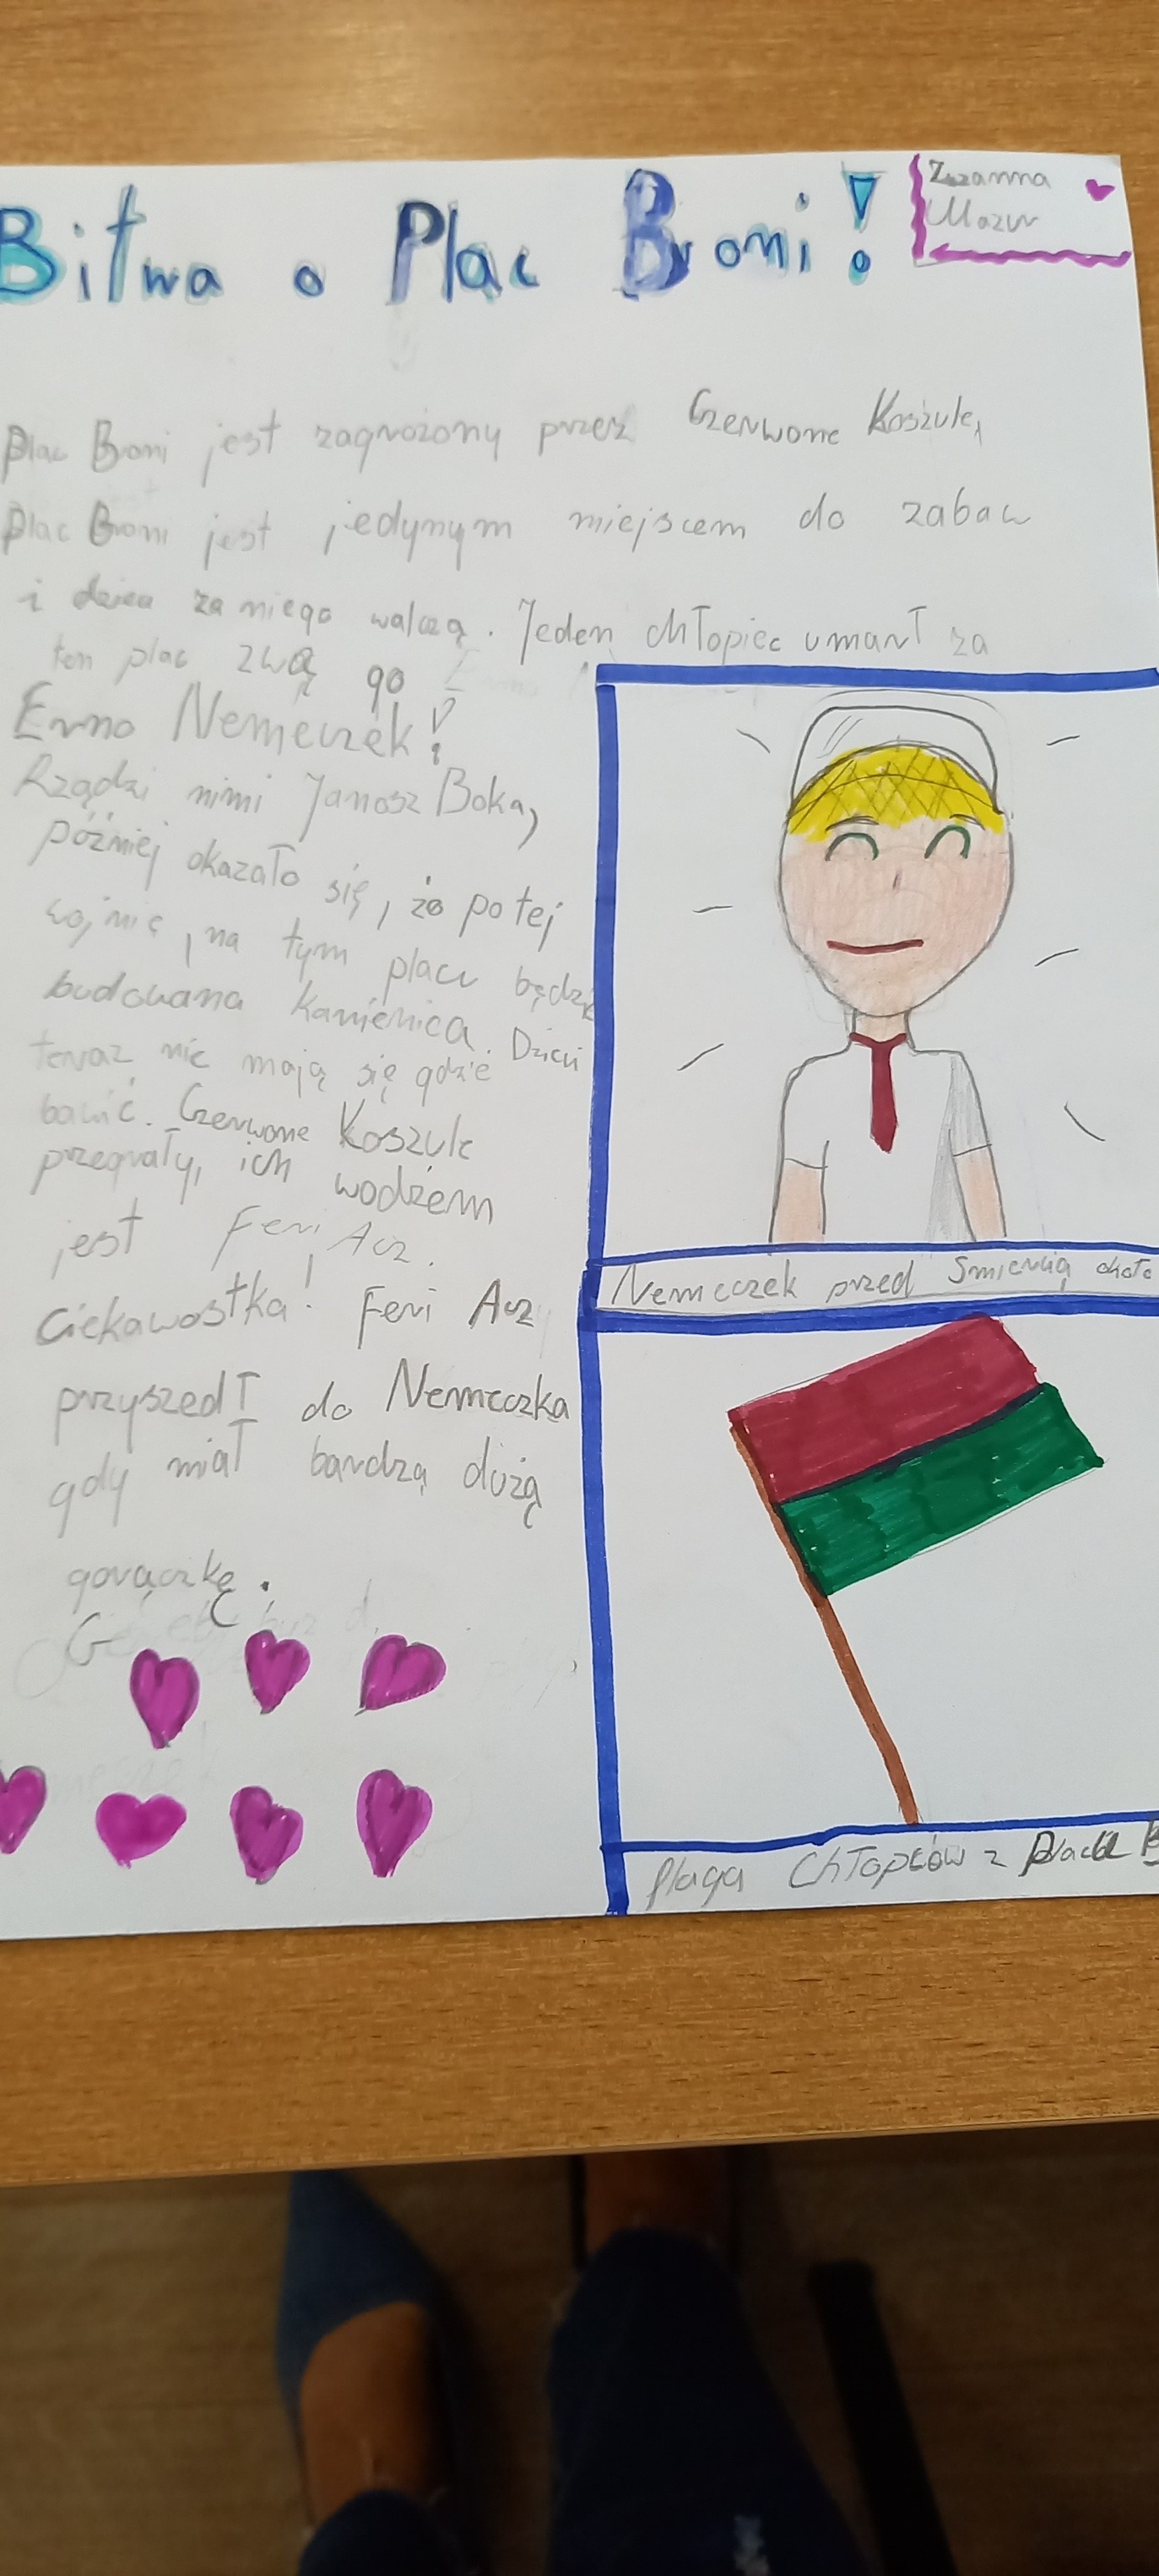 Bitwa o Plac Broni!
Zuzanna
Mazur
Plac Broni jest zagrożony przez Czerwone Koszule,
Plac Broni jest jedynym miejscem do zabaw
i dzieci za niego walczą. Jeden chłopiec umarł za
ten plac zwą go
Erno Nemeczek!
Rządzi nimi Janosz Boka,
później okazało się, że po tej
wojnie, na tym placu będzie
budowana kamienica. Dzieci
teraz nie mają się gdzie
bawić. Czerwone Koszule
przegrały, ich wodzem
jest Feri Acz.
Ciekawostka! Feri Acz
przyszedł do Nemeczka
gdy miał bardzą dużą
gorączkę.
Nemeczek przed śmiercią
flaga Chłopców z Placu B